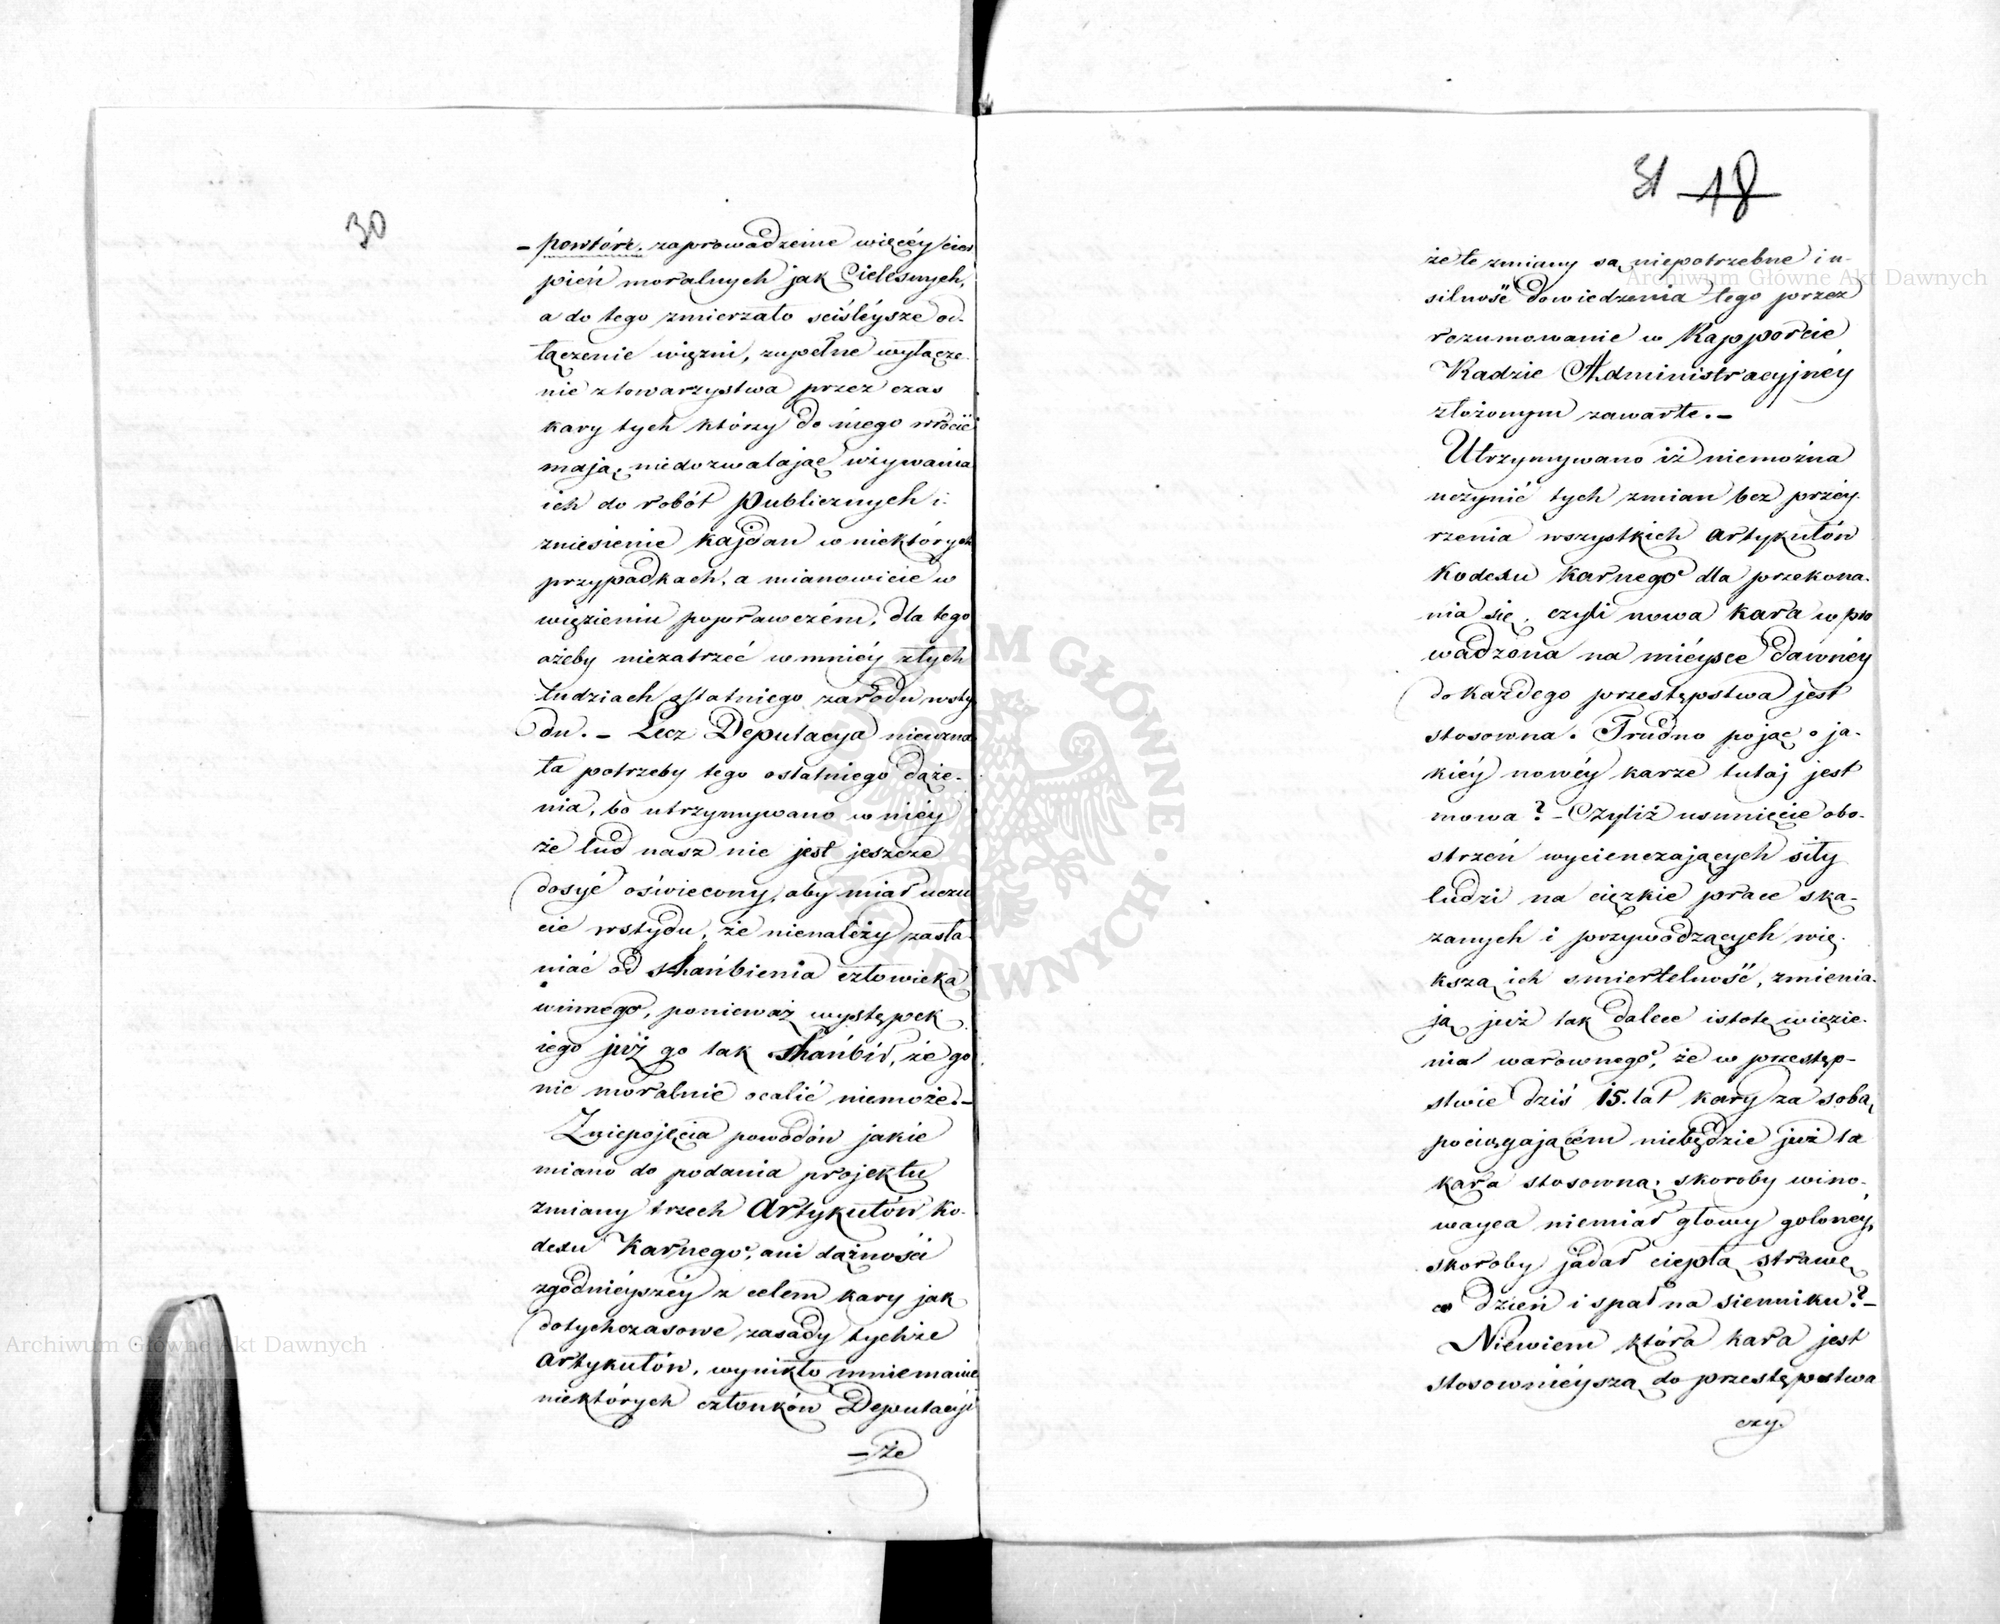 30
– powtóre. zaprowadzenie więcéy cier
pień moralnych jak Cielesnych,
a do tego zmierzało sciśléysze od-
łączenie więzni, zupełne wyłącze-
nie z towarzystwa przez czas
kary tych którzy do niego wrócić
mają, niedozwalając używania
ich do robót Publicznych i
zniesienie kajdan w niektórych
przypadkach, a mianowicie w
więzieniu poprawczém, dla tego
ażeby niezatrzeć w mniéy złych
ludziach ostatniego zarodu wsty
du. – Lecz Deputacya nieuzna
ła potrzeby tego ostatniego dąże-
nia, bo utrzymywano w niéy
że lud nasz nie jest jeszcze
dosyć oświecony, aby miał uczu
cie wstydu, że nienależy zasła-
niać od shańbienia człowieka
winnego, ponieważ występek
iego już go tak shańbił, że go
nic moralnie ocalić niemoże. –
Z niepojęcia powodów jakie
miano do podania projektu
zmiany trzech Artykułów Ko-
dexu Karnego, ani dążności
zgodniéyszéy z celem kary jak
dotychczasowe zasady tychże
Artykułów, wynikło mniemanie
niektórych członków Deputacyi
– że
31 18
że te zmiany są niepotrzebne i u-
silność dowiedzenia tego przez
rozumowanie w Rapporcie
Radzie Administracyjnéy
złożonym zawarte. –
Utrzymywano iż niemożna
uczynić tych zmian bez przéy-
rzenia wszystkich Artykułów
Kodexu Karnego dla przekona-
nia się, czyli nowa kara wpro
wadzona na miéysce dawnéy
do każdego przestępstwa jest
stosowna. Trudno pojąć o ja-
kiéy nowéy karze tutaj jest
mowa? – Czyliż usunięcie obo-
strzeń wycienczających siły
ludzi na ciężkie prace ska-
zanych i przywodzących wię-
kszą ich smiertelność, zmienia-
ją już tak dalece istotę więzie-
nia warownego, że w przestęp-
stwie dziś 15. lat kary za sobą
pociągającém niebędzie już ta
kara stosowną; skoroby wino-
wayca niemiał głowy golonéy,
skoroby jadał ciepłą strawę
co dzień i spał na sienniku? –
Niewiem która kara jest
stosowniéyszą do przestępstwa
czy.
Archiwum Główne Akt Dawnych
Archiwum Główne Akt Dawnych